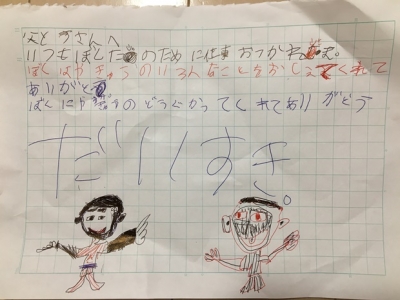 おとうさんへ
いつもぼくたちのために仕事おつかれさま。
ぼくはやきゅうのいろんなことをおしえてくれて
ありがとう
ぼくにやきゅうのどうぐかってくれてありがとう
だいすき。